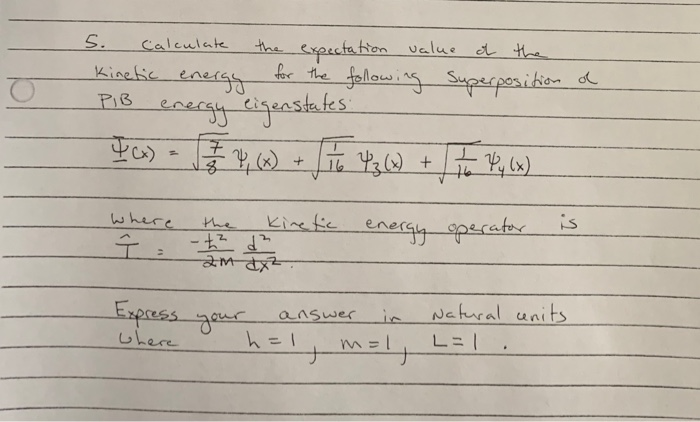 5. Calculate the expectation value of the
Kinetic energy for the following superposition of
PIB energy eigenstates:
Ψ(x) = √(7/8) Ψ₁(x) + √(1/16) Ψ₃(x) + √(1/16) Ψ₄(x)
where the Kinetic energy operator is
T̂ = -ħ²/2m d²/dx².
Express your answer in Natural units
where h = 1, m = 1, L = 1.